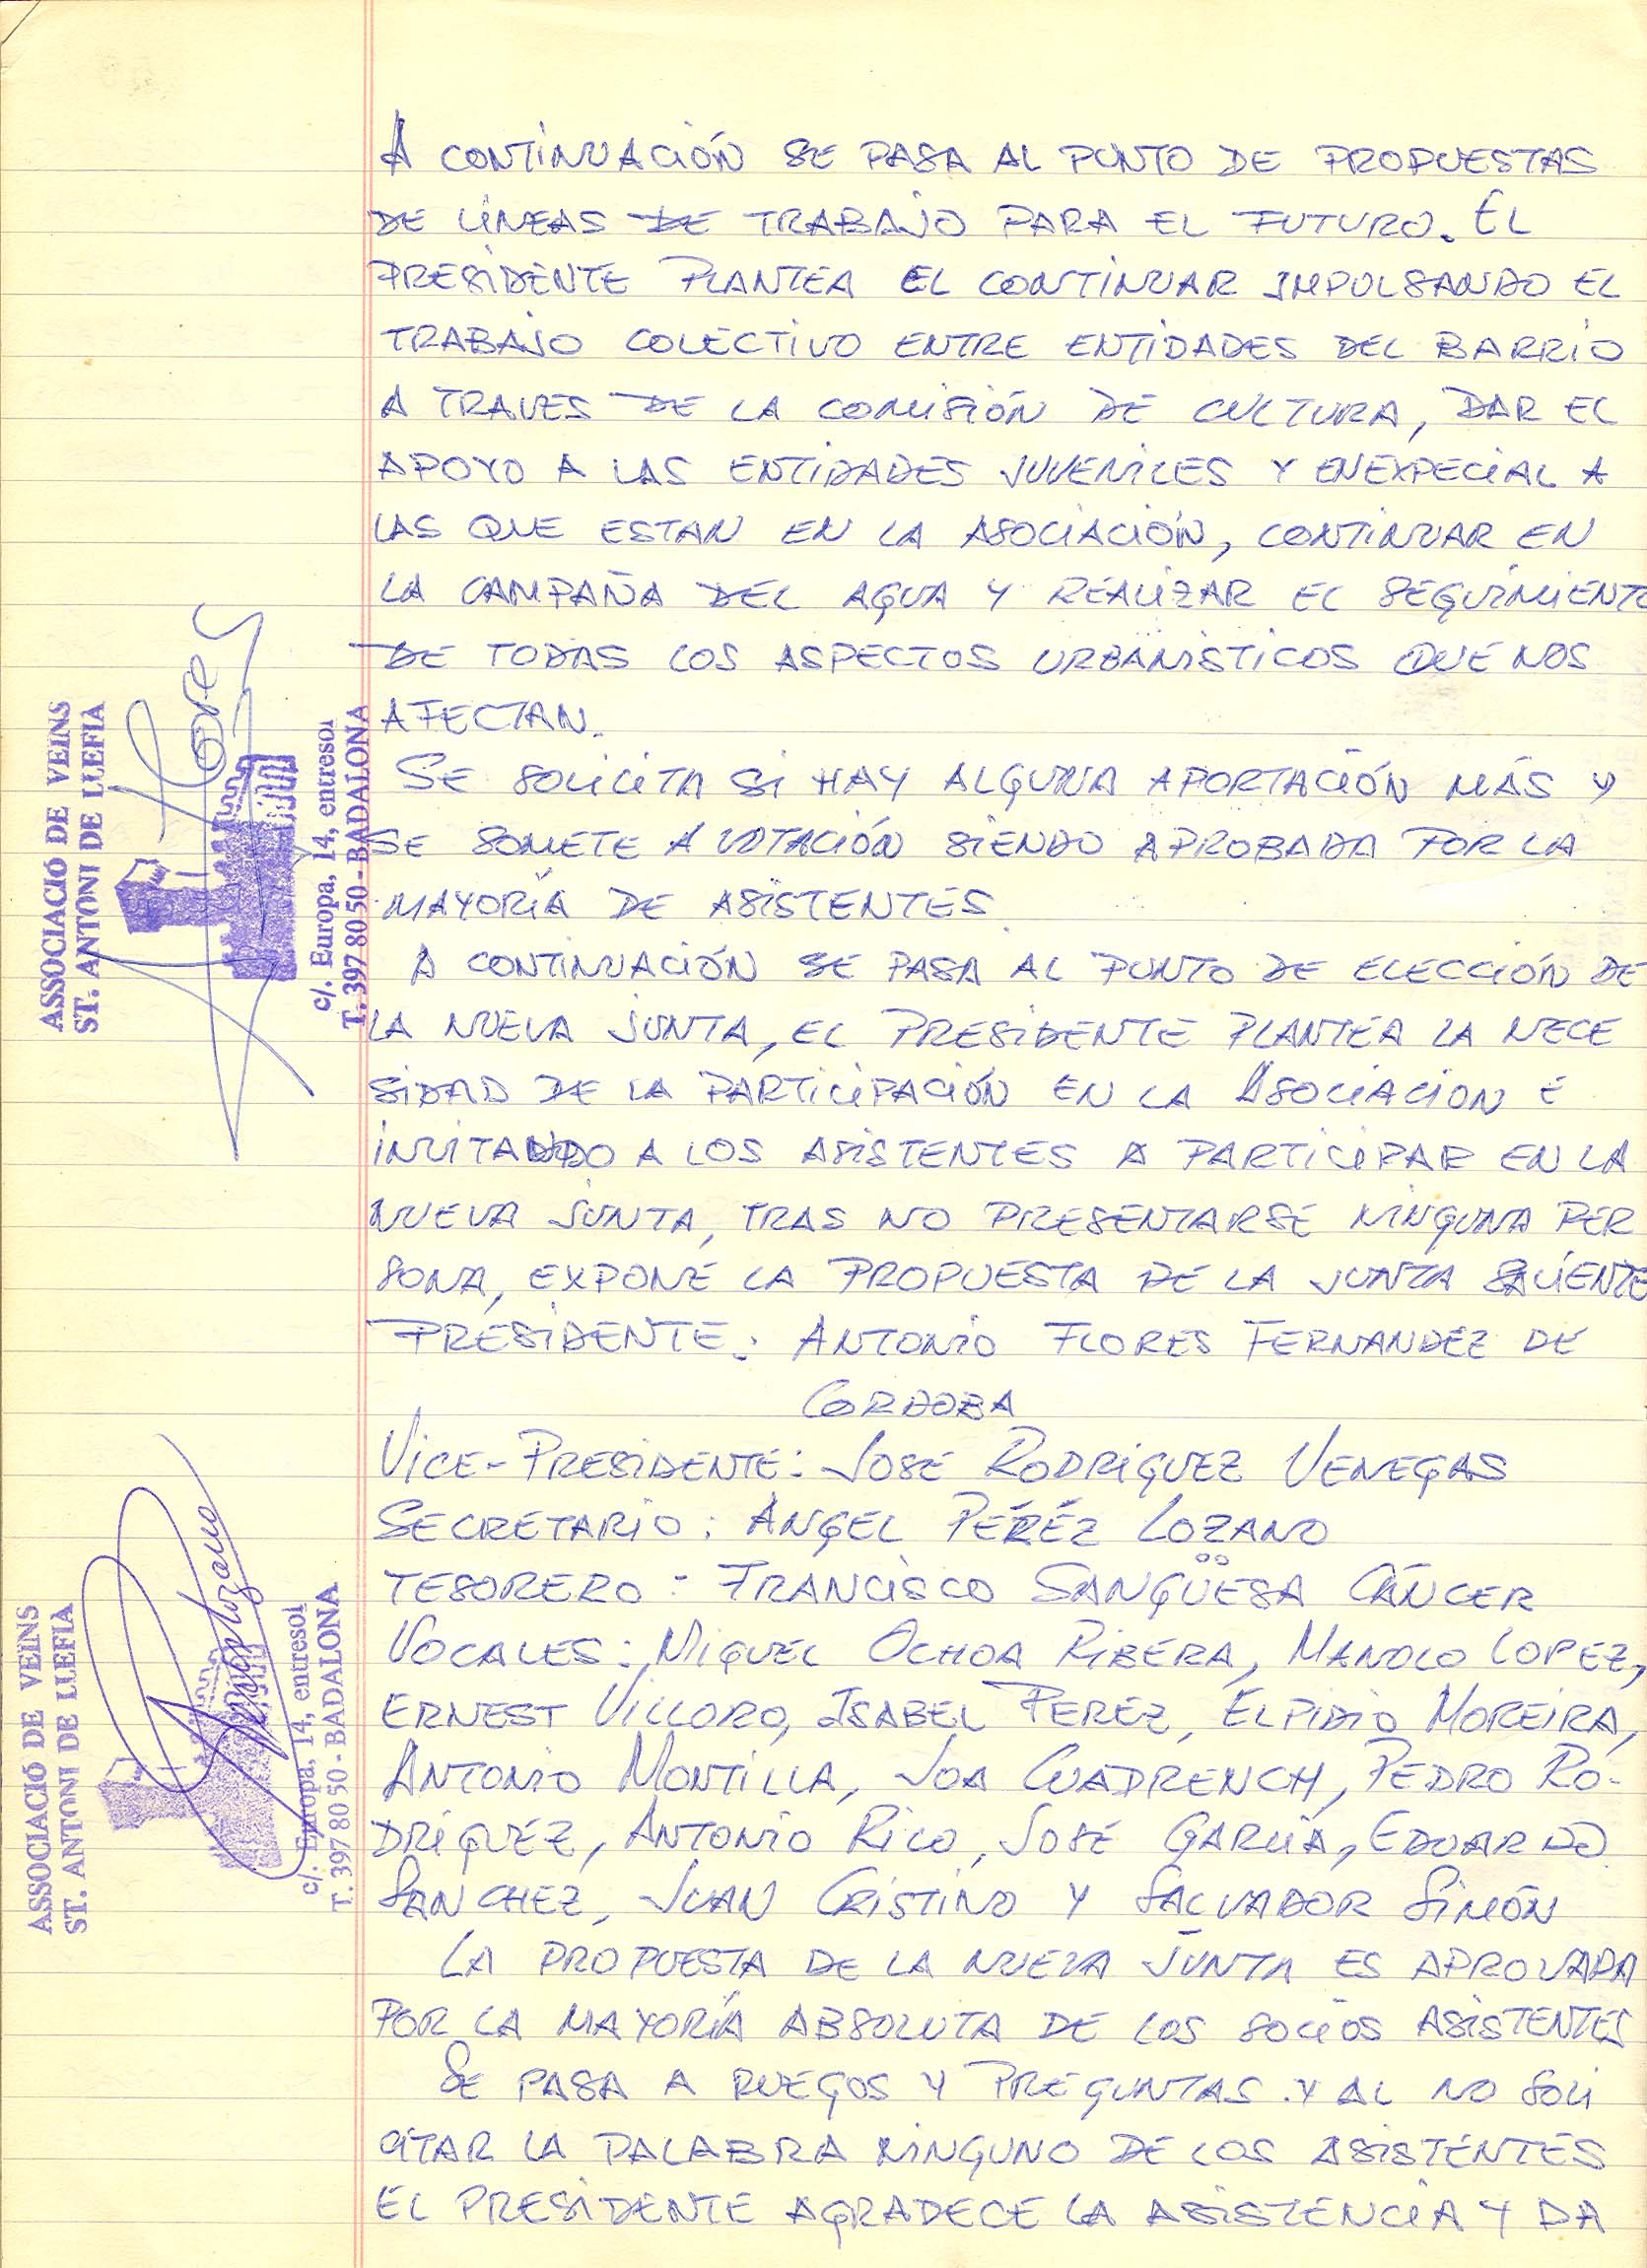 A CONTINUACIÓN SE PASA AL PUNTO DE PROPUESTAS
DE LÍNEAS DE TRABAJO PARA EL FUTURO. EL
PRESIDENTE PLANTEA EL CONTINUAR IMPULSANDO EL
TRABAJO COLECTIVO ENTRE ENTIDADES DEL BARRIO
A TRAVES DE LA COMISIÓN DE CULTURA, DAR EL
APOYO A LAS ENTIDADES JUVENILES Y EN EXPECIAL A
LAS QUE ESTAN EN LA ASOCIACIÓN, CONTINUAR EN
LA CAMPAÑA DEL AGUA Y REALIZAR EL SEGUIMIENTO
DE TODAS LOS ASPECTOS URBANISTICOS QUE NOS
AFECTAN.
SE SOLICITA SI HAY ALGUNA APORTACIÓN MÁS Y
SE SOMETE A VOTACIÓN SIENDO APROBADA POR LA
MAYORÍA DE ASISTENTES
A CONTINUACIÓN SE PASA AL PUNTO DE ELECCIÓN DE
LA NUEVA JUNTA, EL PRESIDENTE PLANTEA LA NECE
SIDAD DE LA PARTICIPACIÓN EN LA ASOCIACION E
INVITANDO A LOS ASISTENTES A PARTICIPAR EN LA
NUEVA JUNTA, TRAS NO PRESENTARSE NINGUNA PER
SONA, EXPONE LA PROPUESTA DE LA JUNTA SALIENTE
PRESIDENTE: ANTONIO FLORES FERNANDEZ DE
CORDOBA
VICE-PRESIDENTE: JOSE RODRIGUEZ VENEGAS
SECRETARIO: ANGEL PÉRÉZ LOZANO
TESORERO: FRANCISCO SANGÜESA CÁNCER
VOCALES: MIGUEL OCHOA RIBERA, MANOLO LOPEZ,
ERNEST VILLORO, ISABEL PEREZ, ELPIDIO MOREIRA,
ANTONIO MONTILLA, JOA CUADRENCH, PEDRO RO-
DRIGUEZ, ANTONIO RICO, JOSÉ GARCIA, EDUARDO
SANCHEZ, JUAN CRISTINO Y SALVADOR SIMÓN
LA PROPUESTA DE LA NUEVA JUNTA ES APROVADA
POR LA MAYORÍA ABSOLUTA DE LOS SOCIOS ASISTENTES
SE PASA A RUEGOS Y PREGUNTAS. Y AL NO SOLI
CITAR LA PALABRA NINGUNO DE LOS ASISTENTES
EL PRESIDENTE AGRADECE LA ASISTENCIA Y DA
ASSOCIACIÓ DE VEINS
ST. ANTONI DE LLEFIA
Flores
c/. Europa, 14, entresol
T. 397 80 50 - BADALONA
ASSOCIACIÓ DE VEINS
ST. ANTONI DE LLEFIA
Lozano
c/. Europa, 14, entresol
T. 397 80 50 - BADALONA